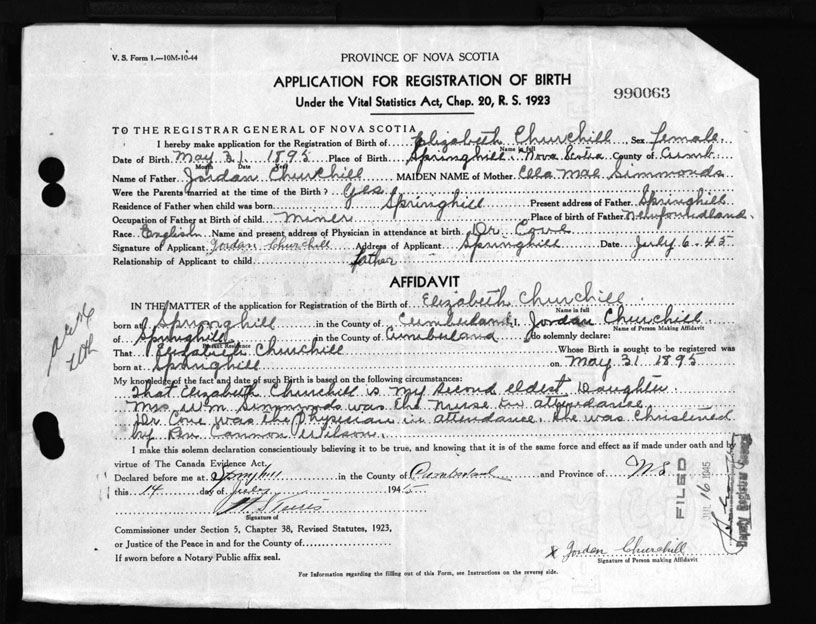 V. S. Form 1.—10M-10-44
PROVINCE OF NOVA SCOTIA
APPLICATION FOR REGISTRATION OF BIRTH
Under the Vital Statistics Act, Chap. 20, R. S. 1923
990063
TO THE REGISTRAR GENERAL OF NOVA SCOTIA
I hereby make application for the Registration of Birth of Elizabeth Churchill Sex female
Name in full
Date of Birth May 31 1895 Place of Birth Springhill Nova Scotia County of Cumb.
Month Date Year
Name of Father Jordan Churchill MAIDEN NAME of Mother Ella Mae Simmonds
Were the Parents married at the time of the Birth? Yes
Residence of Father when child was born Springhill Present address of Father Springhill
Occupation of Father at Birth of child Miner Place of birth of Father Newfoundland
Race English Name and present address of Physician in attendance at birth Dr. Cove
Signature of Applicant Jordan Churchill Address of Applicant Springhill Date July 6-45
Relationship of Applicant to child father
AFFIDAVIT
IN THE MATTER of the application for Registration of the Birth of Elizabeth Churchill
Name in full
born at Springhill in the County of Cumberland I, Jordan Churchill
Name of Person Making Affidavit
of Springhill in the County of Cumberland do solemnly declare:
Present Residence
That Elizabeth Churchill Whose Birth is sought to be registered was
born at Springhill on May 31 1895
My knowledge of the fact and date of such Birth is based on the following circumstances:
That Elizabeth Churchill is my second eldest Daughter.
Mrs Wm Simmonds was the nurse in attendance.
Dr Cove was the Physician in attendance. She was Christened
by Rev Cannon Wilson.
I make this solemn declaration conscientiously believing it to be true, and knowing that it is of the same force and effect as if made under oath and by
virtue of The Canada Evidence Act.
Declared before me at Springhill in the County of Cumberland and Province of N S
this 14 day of July 1945
Signature of
Commissioner under Section 5, Chapter 38, Revised Statutes, 1923,
or Justice of the Peace in and for the County of
If sworn before a Notary Public affix seal.
x Jordan Churchill
Signature of Person making Affidavit
For Information regarding the filling out of this Form, see Instructions on the reverse side.
10th
FILED
JUL 16 1945
Deputy Registrar General